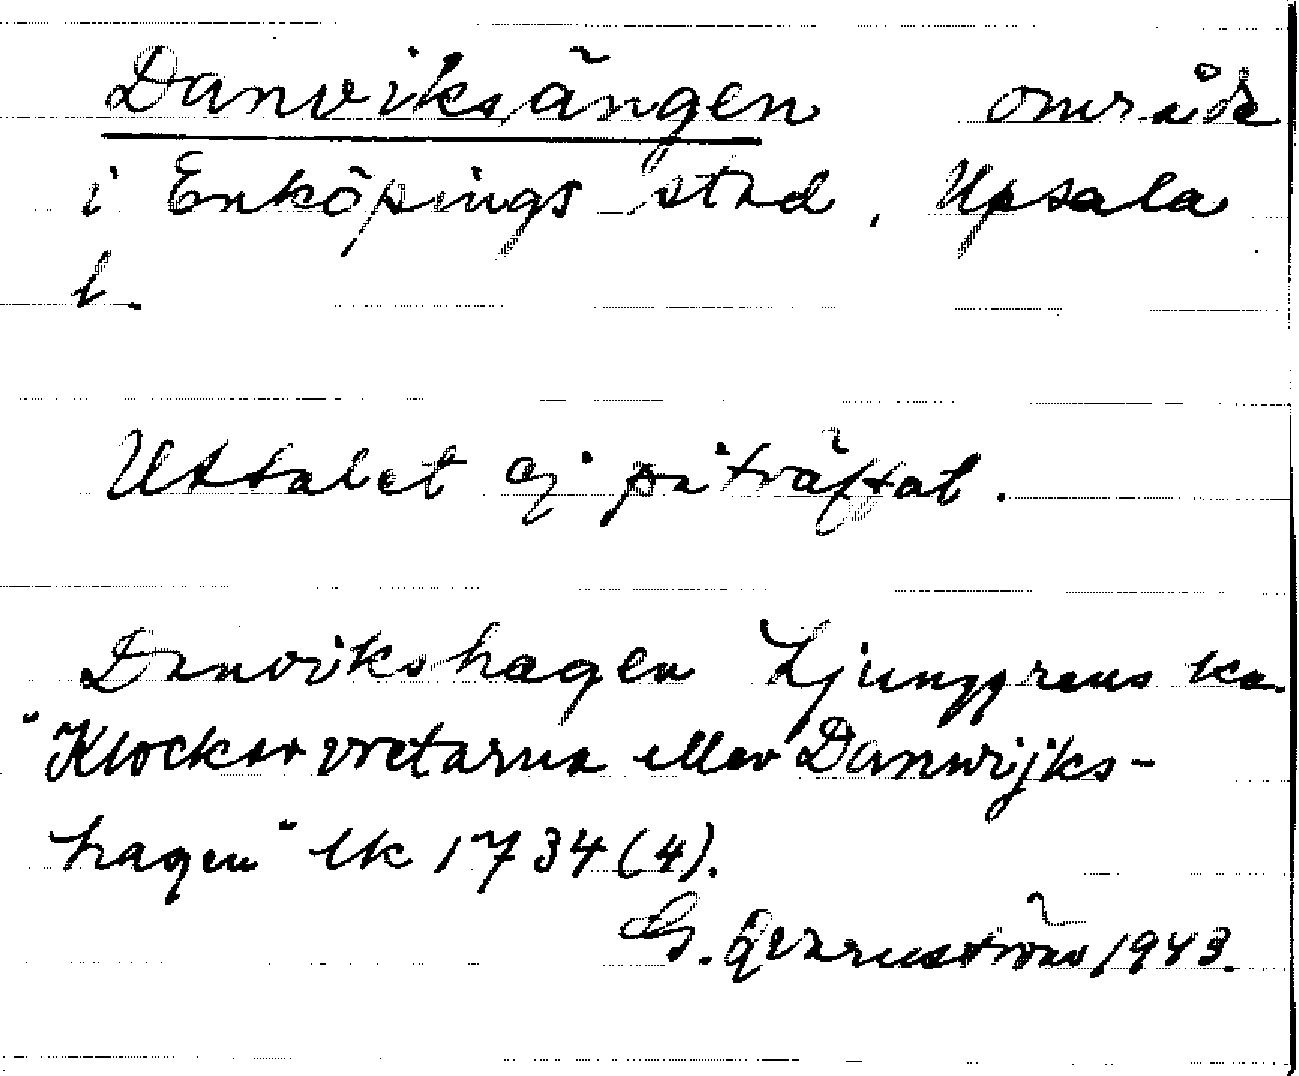 Danviksängen område
i Enköpings stad, Upsala
l.
Uttalet ej påträffat.
Danvikshagen Ljunggrens ka.
"Klockarvretarna eller Danwijks-
hagen" lk 1734 (4).
G. Qvarnström 1943.